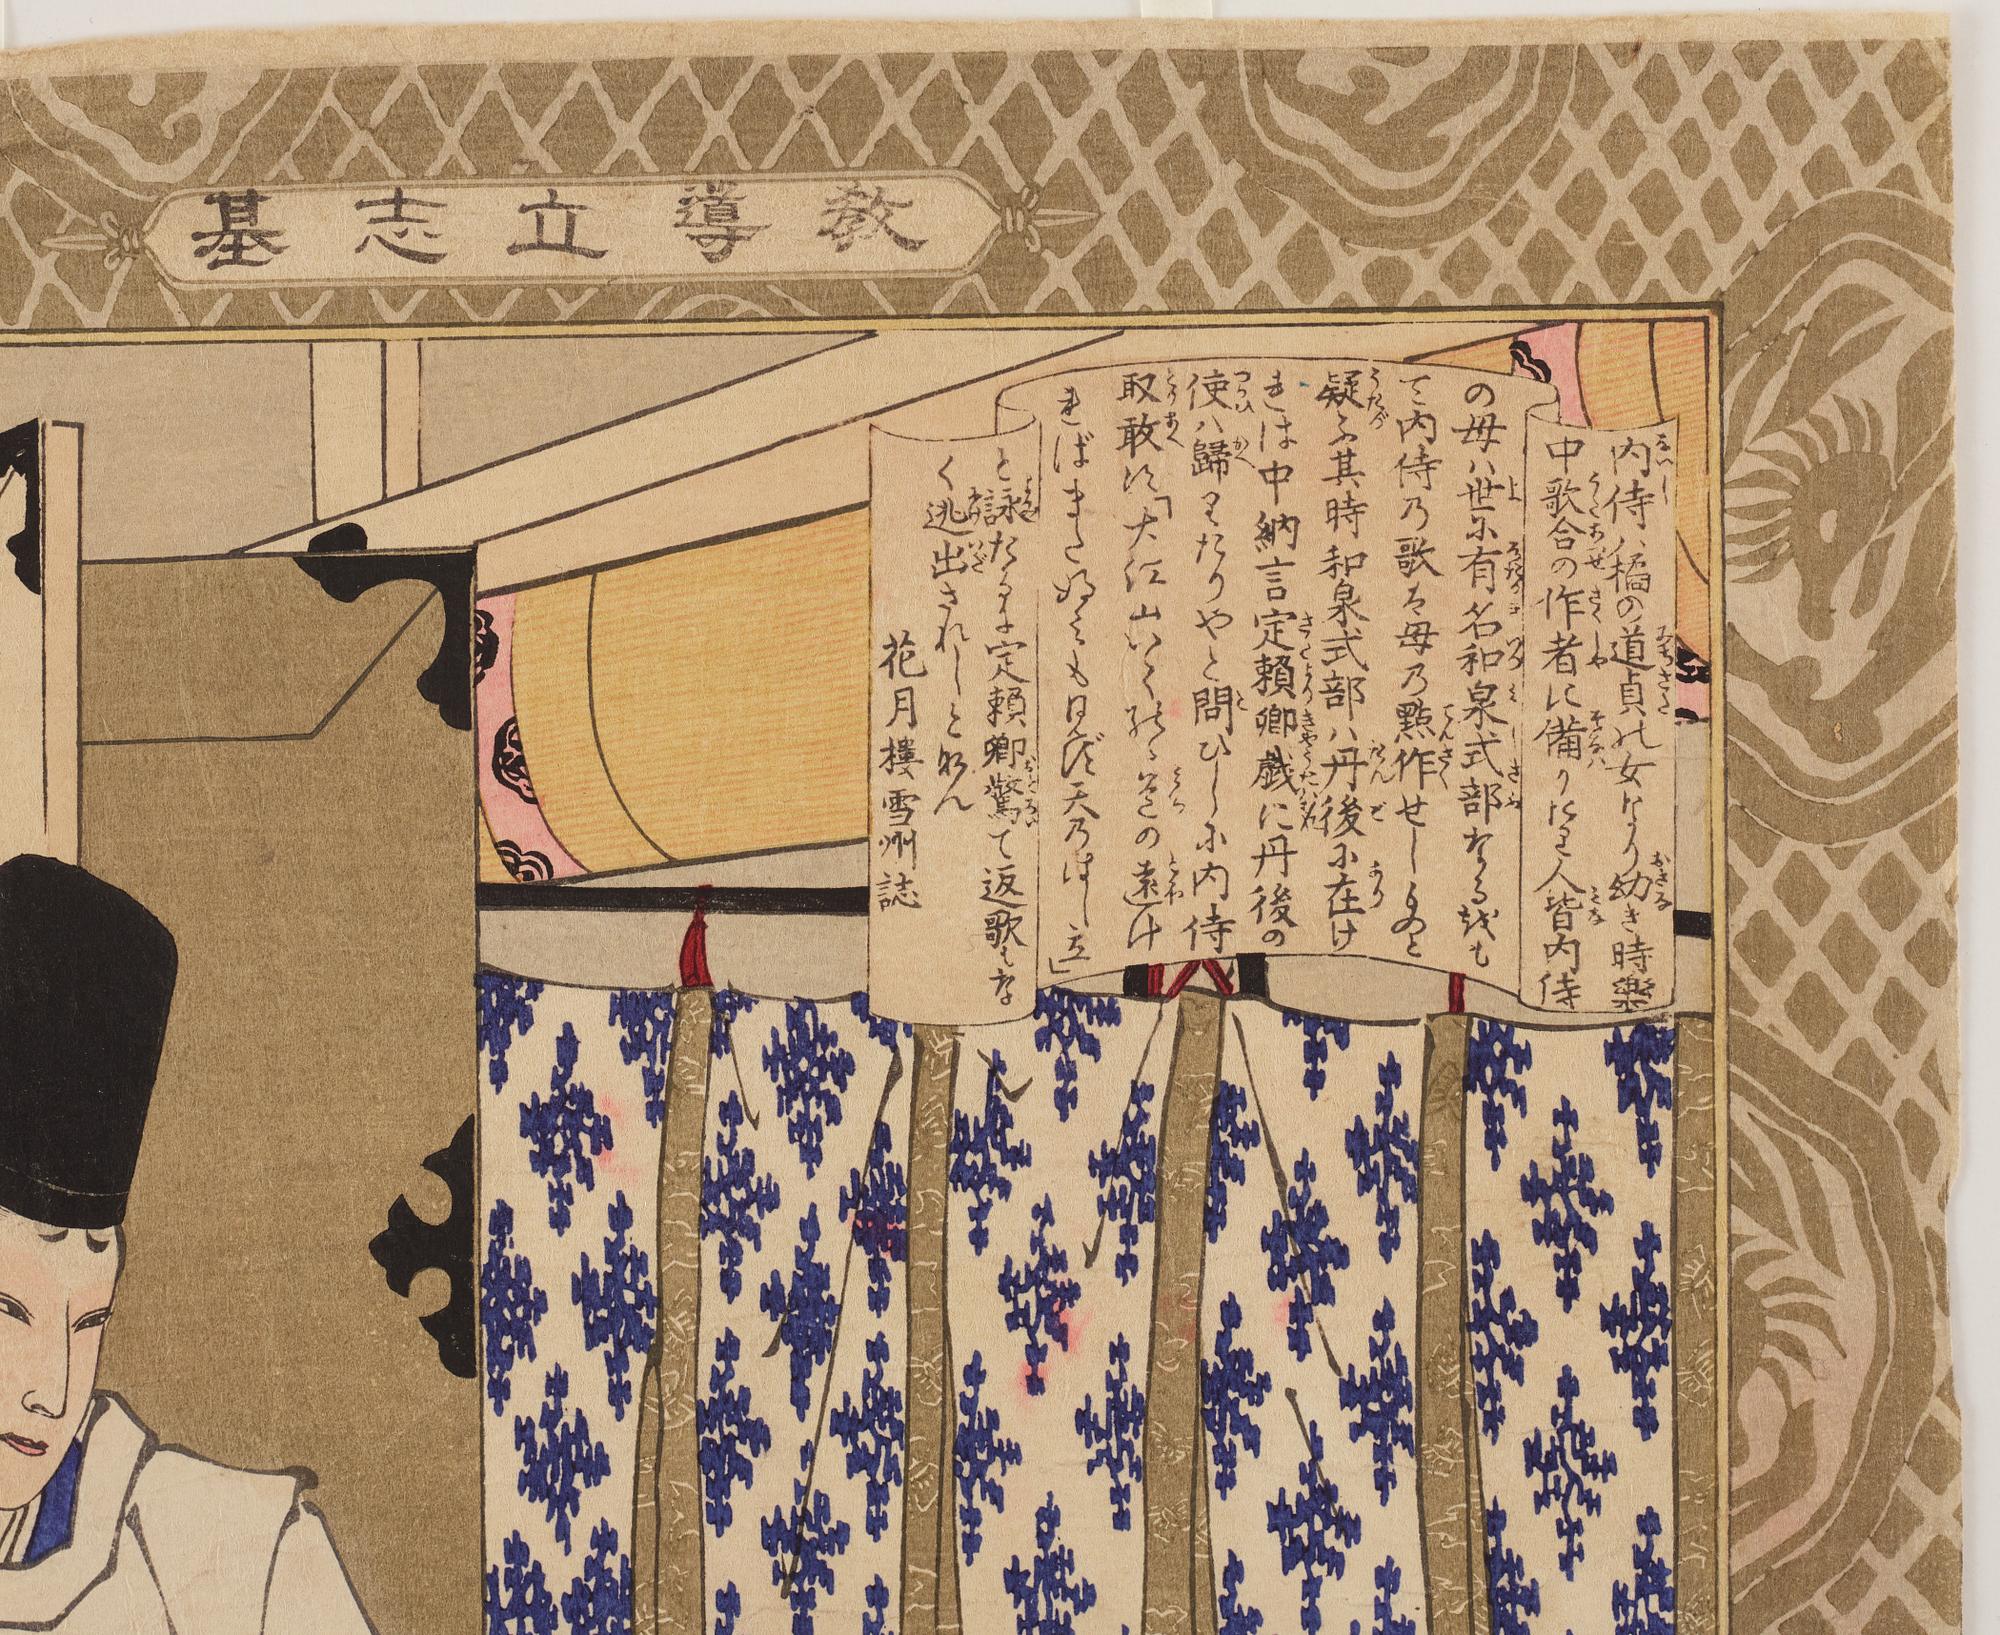 教導立志基
内侍ハ橘の道貞の女なり幼き時樂
中歌合の作者に備りけれ人皆内侍
の母ハ世に有名和泉式部なる故も
て内侍乃歌は母乃點作せしものと
疑ふ其時和泉式部ハ丹後に在け
れは中納言定頼卿戯に丹後の
使ハ歸りたりやと問ひしに内侍
取敢ず「大江山いく野の道の遠け
ればまだふみも見ず天乃はし立」
と詠たるに定頼卿驚て返歌もな
く逃出されしとなん
花月樓雪州誌